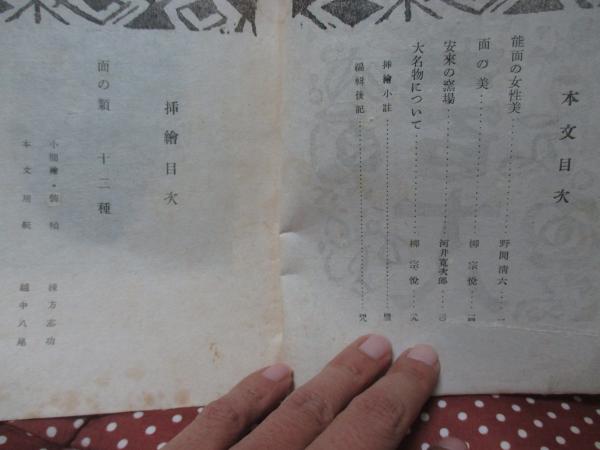 本文目次
能面の女性美 野間清六 一
面の美 柳宗悦
安來の窯場 河井寛次郎
大名物について 柳宗悦
挿繪小註
編輯後記
挿繪目次
面の類 十二種
小間繪・装幀 棟方志功
本文用紙 越中八尾